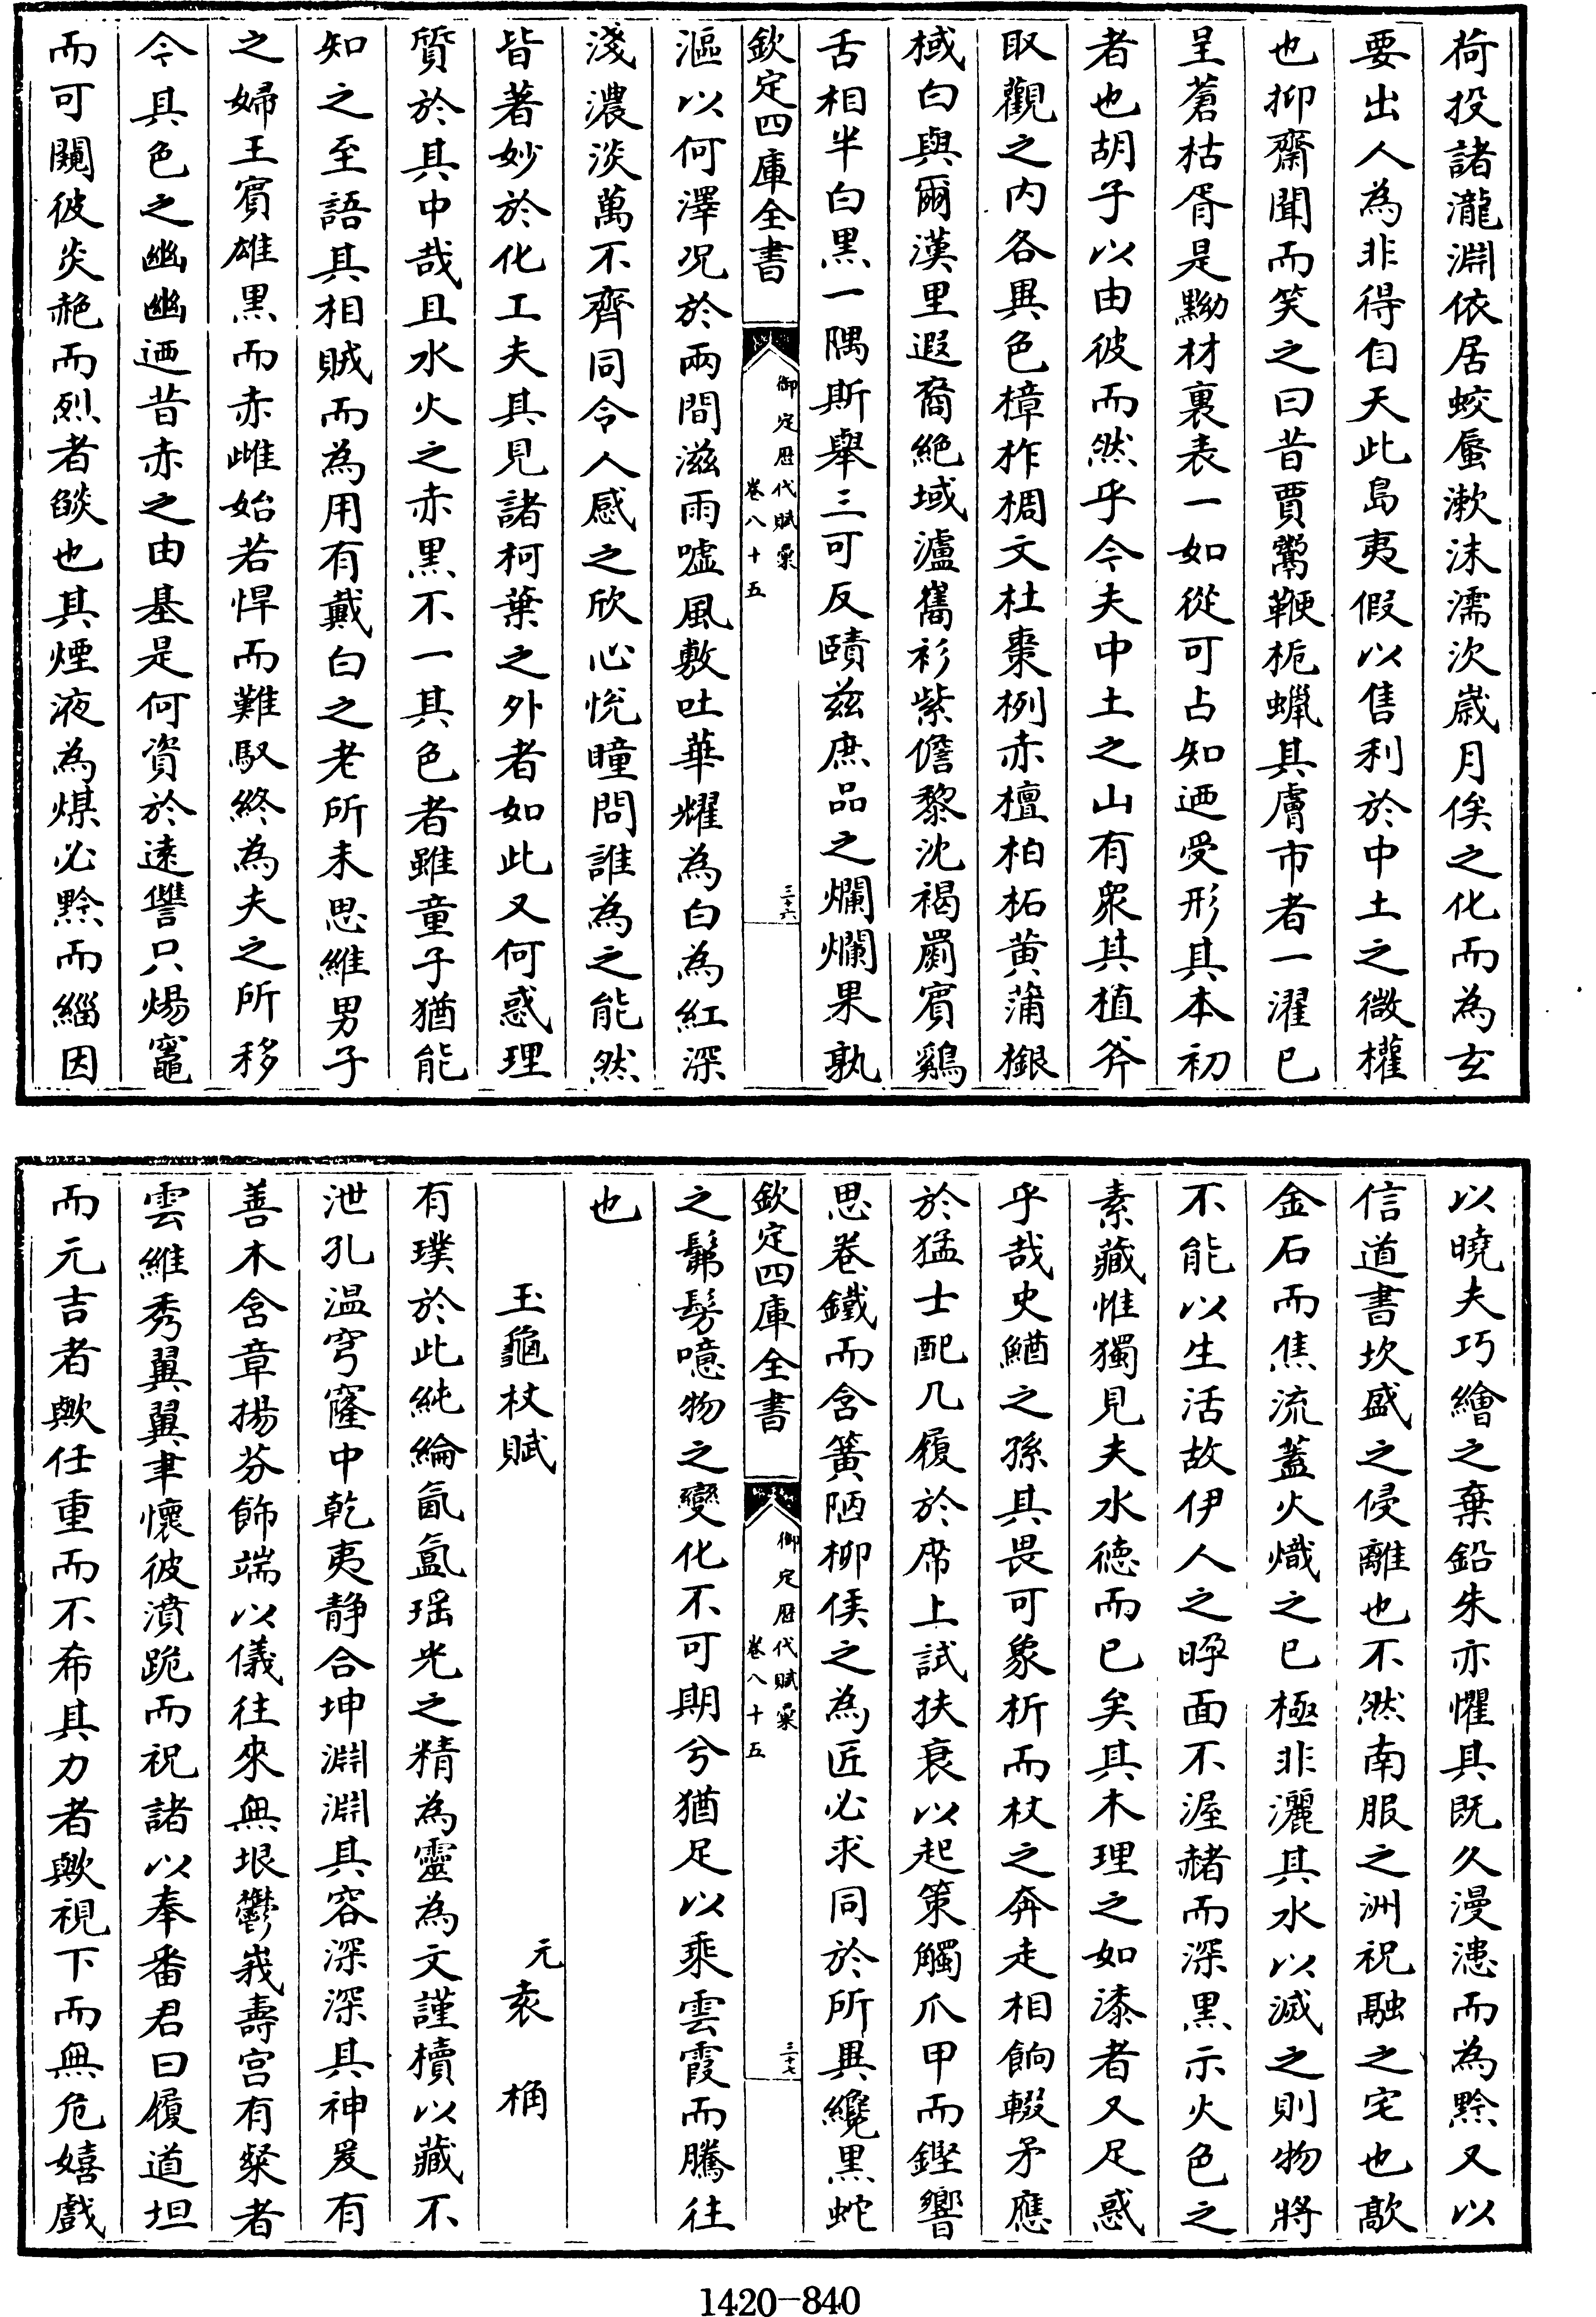 荷投諸瀧淵依居蛟蜃漱沫濡次歲月俟之化而為玄
要出人為非得自天此島夷假以售利於中土之微權
也抑齋聞而笑之曰昔賈鬻鞭梔蠟其膚市者一濯已
呈蒼枯胥是黝材裏表一如從可占知迺受形其本初
者也胡子以由彼而然乎今夫中土之山有衆其植斧
取觀之内各異色樟柞椆文杜棗栵赤檀柏柘黄蒲檭
棫白與爾漢里遐裔絶域瀘舊衫紫儋黎沈褐罽賓鷄
舌相半白黒一隅斯舉三可反賾兹庶品之爛爛果孰
欽定四庫全書
御定歴代賦彙
卷八十五
三十六
漚以何澤况於兩間滋雨噓風敷吐華耀為白為紅深
淺濃淡萬不齊同令人感之欣心悅瞳問誰為之能然
皆著妙於化工夫其見諸柯葉之外者如此又何惑理
質於其中哉且水火之赤黒不一其色者雖童子猶能
知之至語其相賊而為用有戴白之老所未思維男子
之婦壬賓雄黒而赤雌始若悍而難馭終為夫之所移
今具色之幽幽迺昔赤之由基是何資於遠讐只煬竈
而可闚彼炎赩而烈者燄也其煙液為煤必黔而緇因
以曉夫巧繪之棄鉛朱亦懼具既久漫漶而為黔又以
信道書坎盛之侵離也不然南服之洲祝融之宅也歊
金石而焦流蓋火熾之已極非灑其水以滅之則物將
不能以生活故伊人之睜面不渥赭而深黒示火色之
素藏惟獨見夫水德而已矣其木理之如漆者又足惑
乎哉史鰌之孫其畏可象析而杖之奔走相餉輟矛應
於猛士配几履於席上試扶衰以起策觸爪甲而鏗響
思卷鐵而含簧陋柳侯之為匠必求同於所異纔黒蛇
欽定四庫全書
御定歴代賦彙
卷八十五
三十七
之髴髣噫物之變化不可期兮猶足以乘雲霞而騰往
也
玉龜杖賦
元袁桷
有璞於此純綸氤氲瑶光之精為靈為文謹櫝以藏不
泄孔温穹窿中乾夷静合坤淵淵其容深深其神爰有
善木含章揚芬飾端以儀往來無垠鬱峩壽宫有粲者
雲維秀翼翼聿懷彼濆跪而祝諸以奉番君曰履道坦
而元吉者歟任重而不希其力者歟視下而無危嬉戲
1420-840